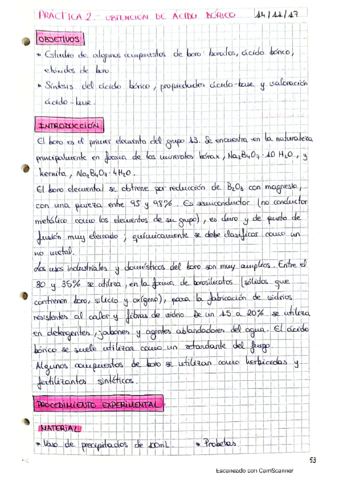 PRÁCTICA 2. OBTENCIÓN DE ÁCIDO BÓRICO 14/11/17
OBJETIVOS
• Estudio de algunos compuestos de boro: boratos, ácido bórico,
de boro.
• Síntesis del ácido bórico, propiedades ácido-base y valoración
ácido-base.
INTRODUCCIÓN
El boro es el primer elemento del grupo 13. Se encuentra en la naturaleza
principalmente en forma de los minerales bórax, Na₂B₄O₇·10 H₂O, y
kernita, Na₂B₄O₇·4H₂O.
El boro elemental se obtiene por reducción de B₂O₃ con magnesio,
con una pureza entre 95 y 98%. Es semiconductor (no conductor
metálico como los elementos de su grupo), es duro y de punto de
fusión muy elevado; químicamente se debe clasificar como un
no metal.
Los usos industriales y domésticos del boro son muy amplios. Entre el
30 y 35% se utiliza, en la forma de borosilicatos (sólidos que
contienen boro, silicio y oxígeno), para la fabricación de vidrios
resistentes al calor y fibras de vidrio. De un 15 a 20% se utiliza
en detergentes, jabones y agentes ablandadores del agua. El ácido
bórico se suele utilizar como un retardante del fuego.
Algunos compuestos de boro se utilizan como herbicidas y
fertilizantes sintéticos.
PROCEDIMIENTO EXPERIMENTAL
MATERIAL
• Vaso de precipitados de 100mL • Probetas
53
Escaneado con CamScanner